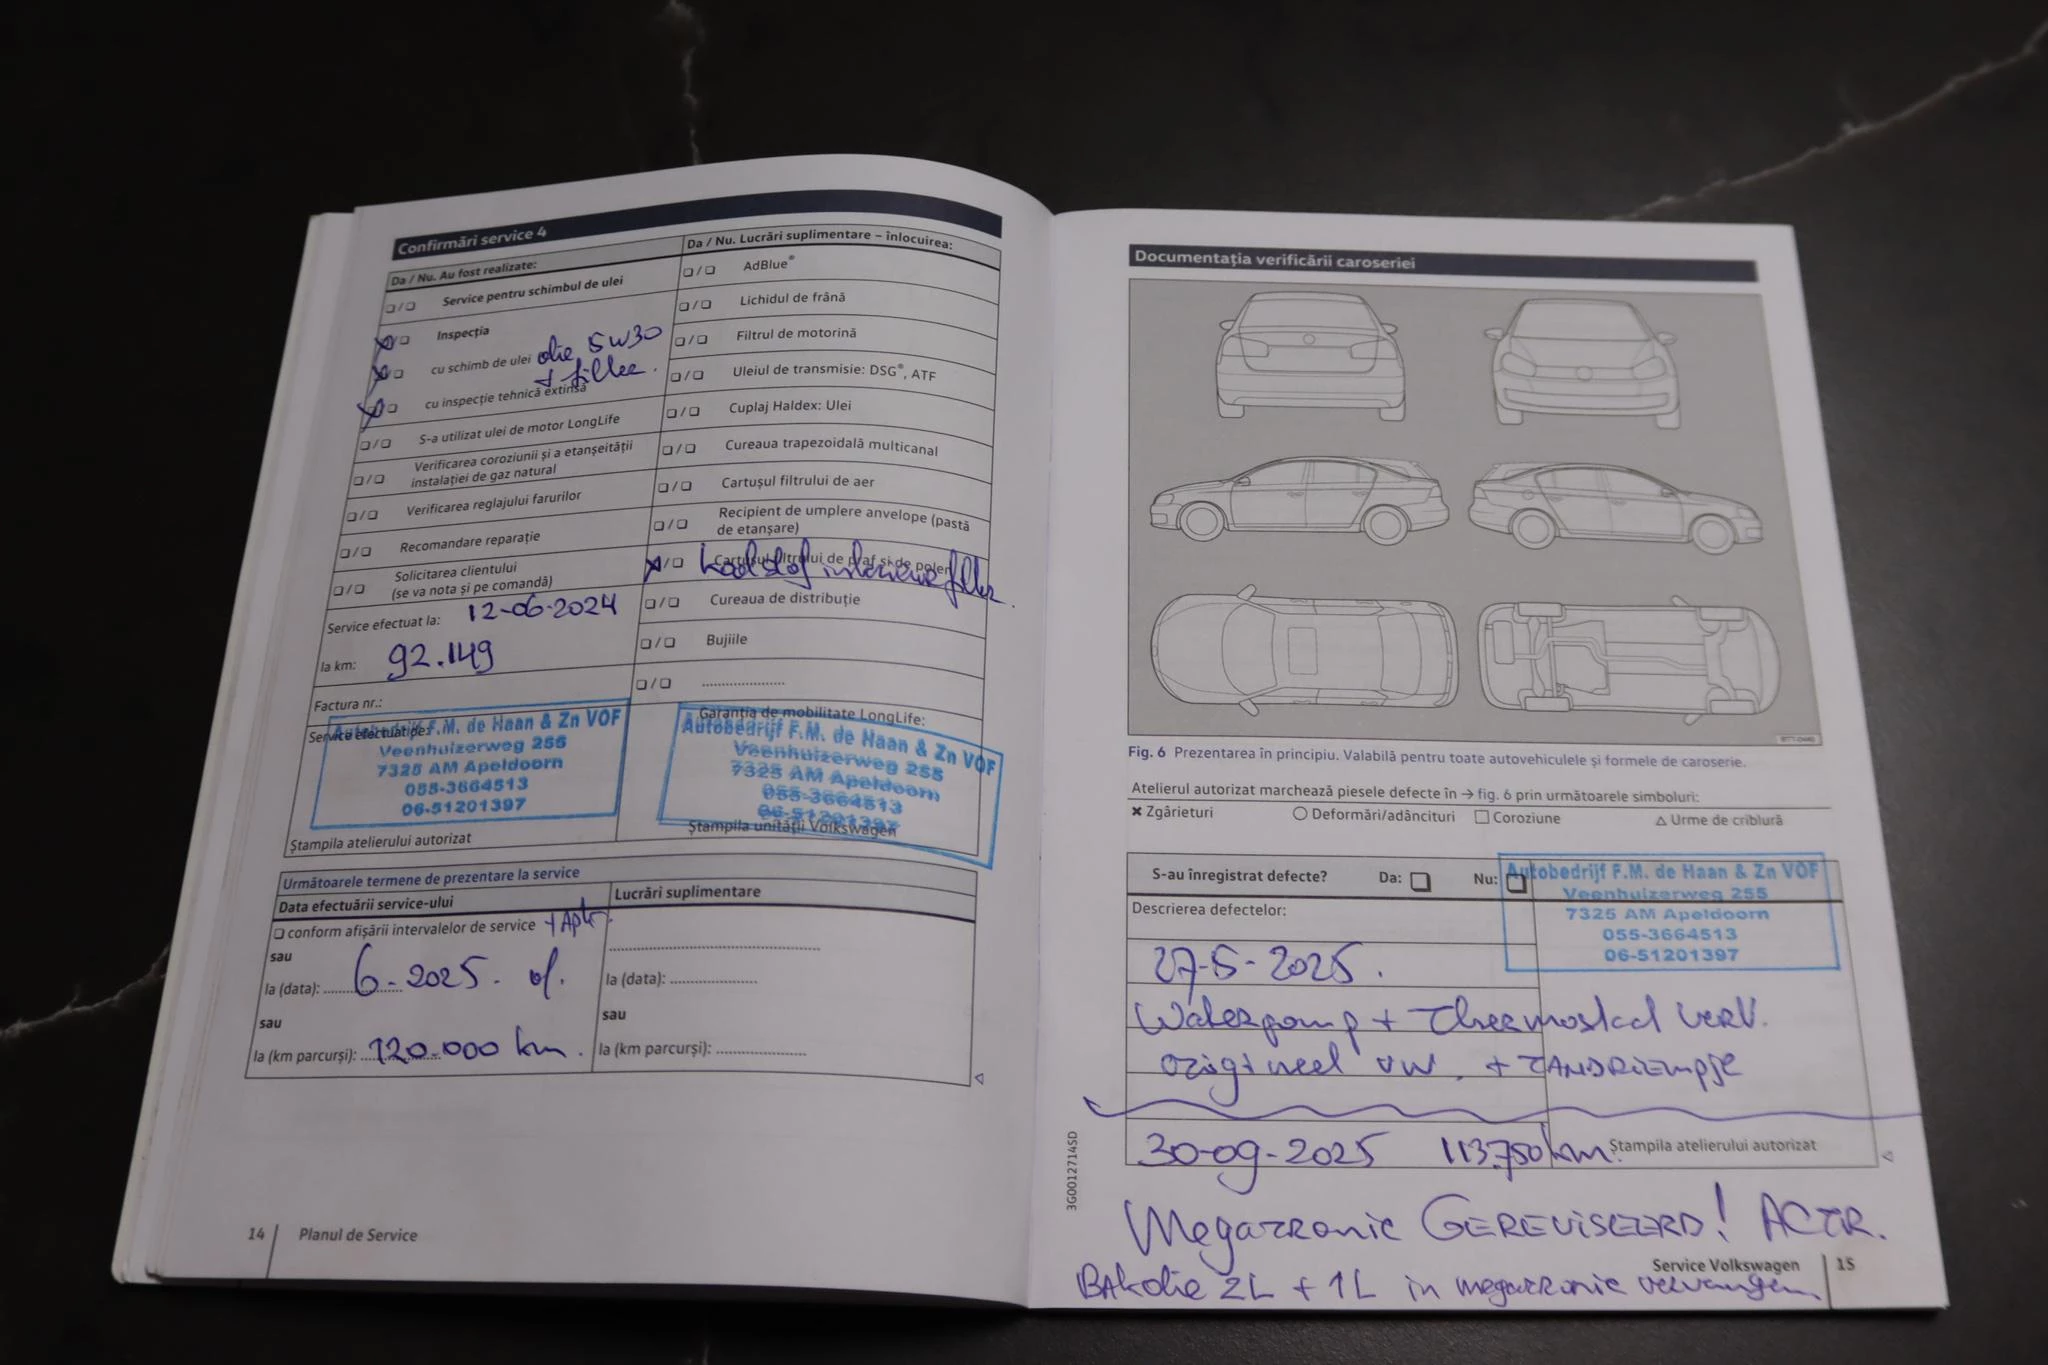 Confirmări service 4
Da / Nu. Au fost realizate:
❏/❏ Service pentru schimbul de ulei
❏/❏ Inspecția
❏/❏ cu schimb de ulei olie 5W30
+ filter.
❏/❏ cu inspecție tehnică extinsă
❏/❏ S-a utilizat ulei de motor LongLife
❏/❏ Verificarea coroziunii și a etanșeității
instalației de gaz natural
❏/❏ Verificarea reglajului farurilor
❏/❏ Recomandare reparație
❏/❏ Solicitarea clientului
(se va nota și pe comandă)
Service efectuat la: 12-06-2024
la km: 92.149
Factura nr.:
Service efectuat de:
Autobedrijf F.M. de Haan & Zn VOF
Veenhuizerweg 255
7325 AM Apeldoorn
055-3664513
06-51201397
Ștampila atelierului autorizat
Da / Nu. Lucrări suplimentare – înlocuirea:
❏/❏ AdBlue®
❏/❏ Lichidul de frână
❏/❏ Filtrul de motorină
❏/❏ Uleiul de transmisie: DSG®, ATF
❏/❏ Cuplaj Haldex: Ulei
❏/❏ Cureaua trapezoidală multicanal
❏/❏ Cartușul filtrului de aer
❏/❏ Recipient de umplere anvelope (pastă
de etanșare)
❏/❏ Cartușul filtrului de praf și de polen
koolstof interieurfilter.
❏/❏ Cureaua de distribuție
❏/❏ Bujiile
❏/❏ ....................
Garanția de mobilitate LongLife:
Autobedrijf F.M. de Haan & Zn VOF
Veenhuizerweg 255
7325 AM Apeldoorn
055-3664513
06-51201397
Ștampila unității Volkswagen
Următoarele termene de prezentare la service
Data efectuării service-ului
❏ conform afișării intervalelor de service
sau
la (data): 6-2025. of.
sau
la (km parcurși): 120.000 km.
Lucrări suplimentare
la (data): ....................
sau
la (km parcurși): ....................
14 Planul de Service
Documentația verificării caroseriei
Fig. 6 Prezentarea în principiu. Valabilă pentru toate autovehiculele și formele de caroserie.
Atelierul autorizat marchează piesele defecte în → fig. 6 prin următoarele simboluri:
✖ Zgârieturi ○ Deformări/adâncituri □ Coroziune △ Urme de criblură
S-au înregistrat defecte? Da: ❏ Nu: ❏
Autobedrijf F.M. de Haan & Zn VOF
Veenhuizerweg 255
7325 AM Apeldoorn
055-3664513
06-51201397
Descrierea defectelor:
27-5-2025.
Waterpomp + Thermostaat verv.
origineel VW. + TANDRIEMPJE
30-09-2025 113.750 km.
Ștampila atelierului autorizat
3G0012714SD
Megatronic GEREVISEERD! ACTR.
BAKolie 2L + 1L in megatronic vervangen
Service Volkswagen 15